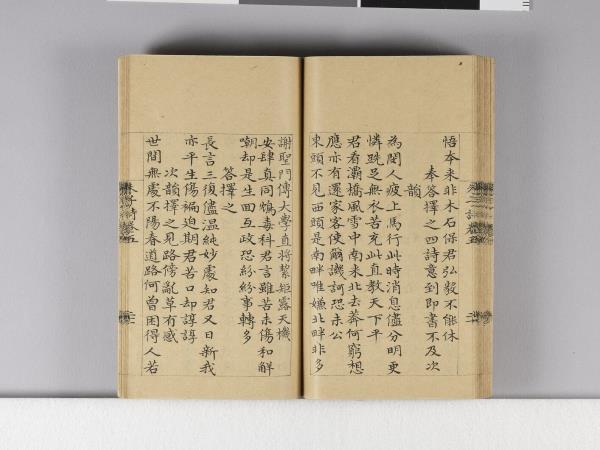 悟本来非木石保君弘毅不能休
奉答擇之四詩意到即書不及次
韻
為閔人疲上馬行此時消息儘分明更
憐跣足無衣苦充此直教天下平
君看灞橋風雪中南来北去莽何窮想
應亦有還家客便爾譏訶恐未公
東頭不見西頭是南畔唯嫌北畔非多
謝聖門傳大學直將絜矩露天機
安肆真同鴆毒科君言雖苦未傷和解
嘲却是生回互政恐紛紛事轉多
答擇之
長言三復儘温純妙處知君又日新我
亦平生傷褊迫期君苦口却諄諄
次韻擇之見路傍亂草有感
世間無處不陽春道路何曾困得人若